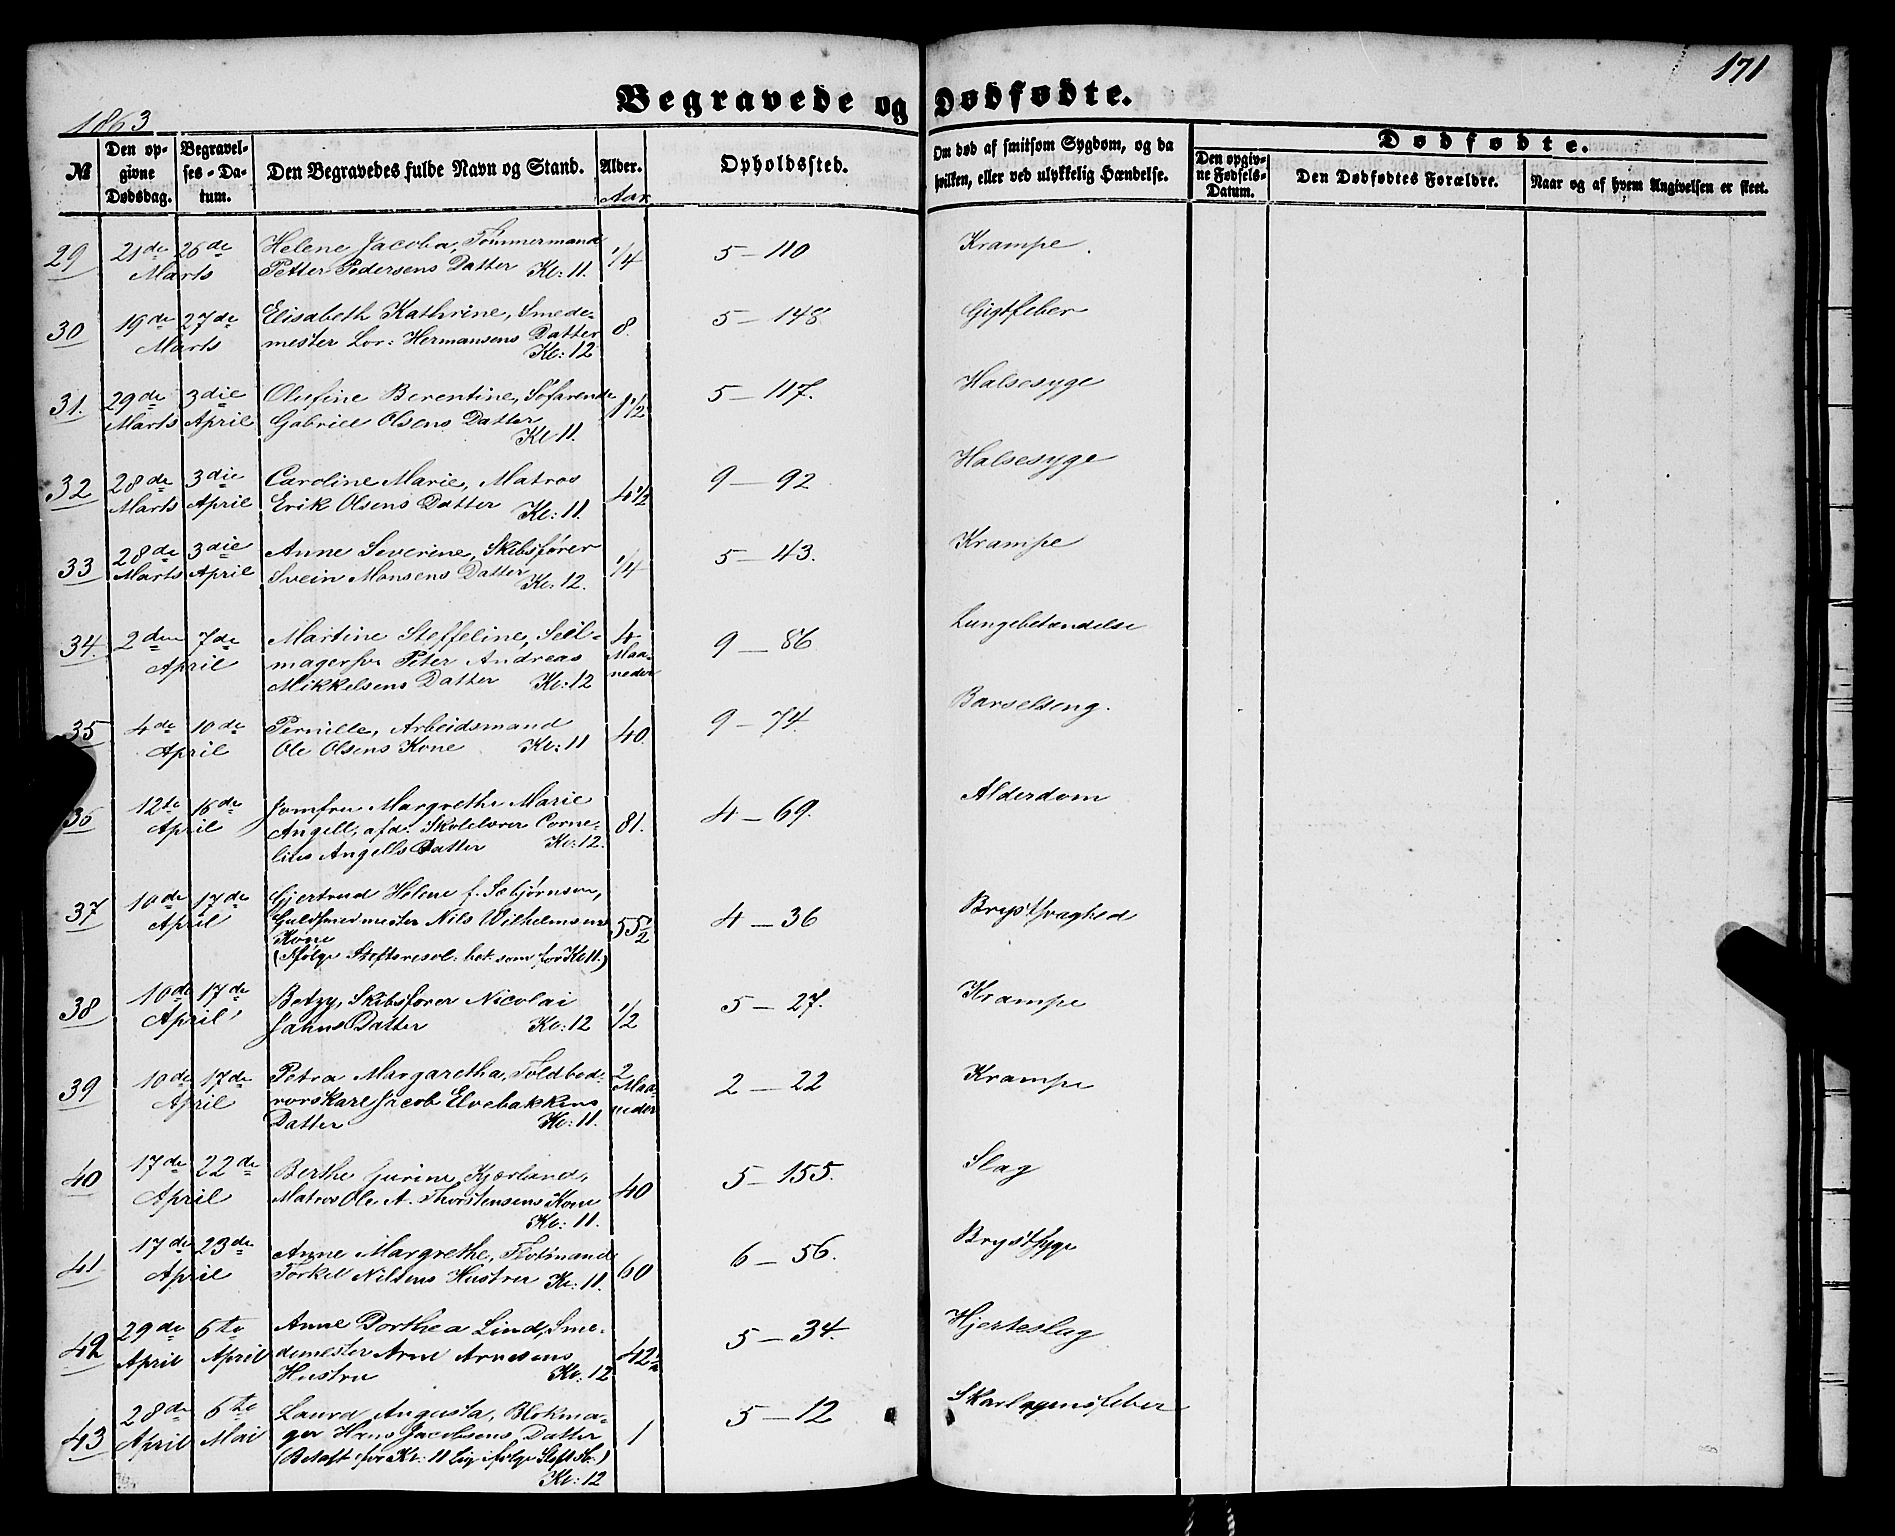 171
Begravede og Dødfødte.
1863
№
Den opgivne Dødsdag.
Begravelses-Datum.
Den Begravedes fulde Navn og Stand.
Alder.
Aar
Opholdssted.
Om død af smitsom Sygdom, og da hvilken, eller ved ulykkelig Hændelse.
Dødfødte.
Den opgivne Fødsels-Datum.
Den Dødfødtes Forældre.
Naar og af hvem Angivelsen er skeet.
29 21de 26de Helene Jacoba, Tömmermand 1/4 5 — 110 Krampe
Marts Petter Pedersens Datter Kl: 11.
30 19de 27de Elisabeth Kathrine, Smede- 8. 5 — 148. Gigtfeber
Marts mester Lor: Hermansens Datter
Kl: 12
31. 29de 3die Olufine Berentine, Söfarende 8 1/2 5 — 117. Halsesyge
Marts April Gabriel Olsens Datter
Kl 11.
32 28de 3die Caroline Marie, Matros 4 1/2 9 — 92 Halsesyge
Marts April Erik Olsens Datter Kl: 11.
33 28de 3die Anne Severine, Skibsfører 1/4 5 — 43. Krampe
Marts April Svein Monsens Datter Kl: 12.
34. 2den 7de Martine Steffeline, Seil- 4 Maaneder 9 — 86 Lungebetændelse
April magersv Peter Andreas
Mikkelsens Datter Kl: 12
35 4de 10de Pernille, Arbeidsmand 40. 9 — 74. Barselseng.
April Ole Olsens Kone Kl: 11
36 12te 16de Jomfru Margrethe Marie 81. 4 — 69. Alderdom
April Angell, afd: Skolelærer Corne-
lius Angells Datter Kl: 12.
37 10de 17de Gjertrud Helene f. Sæbjørnsen, 55 1/2 4 — 36 Brystsvaghed
April Guldsmedmester Nils Wilhelmsens
Kone
(Ifølge Stiftsresol. bet. som for Kl 11.)
38 10de 17de Betzy, Skibsfører Nicolai 1/2 5 — 27. Krampe
April Jahns Datter Kl: 12
39 10de 17de Petra Margaretha, Toldbod- 2 Maaneder 2 — 22 Krampe
April rorskarl Jacob Elvebakkens
Datter Kl: 11.
40 17de 22de Berthe Gurine Kjærland, 40 5 — 155. Slag
April Matros Ole A. Thorstensens Kone
Kl: 11.
41 17de 23de Anne Margrethe, Flotmand 60 6 — 56. Brystsyge
April Torkel Nilsens Hustru Kl: 11.
42 29de 6te Anne Dorthea Lind, Sme- 42 1/2 5 — 34. Hjerteslag
April April demester Arne Arnesens
Hustru Kl: 12
43 28de 6te Laura Augusta, Blokma- 1 5 — 12 Skarlagensfeber
April Mai ger Hans Jacobsens Datter
(Betalt for Kl: 11 Lig ifølge Stift)
Kl: 12